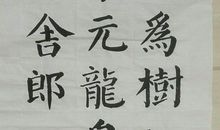 爲樹
元龍
舍郎